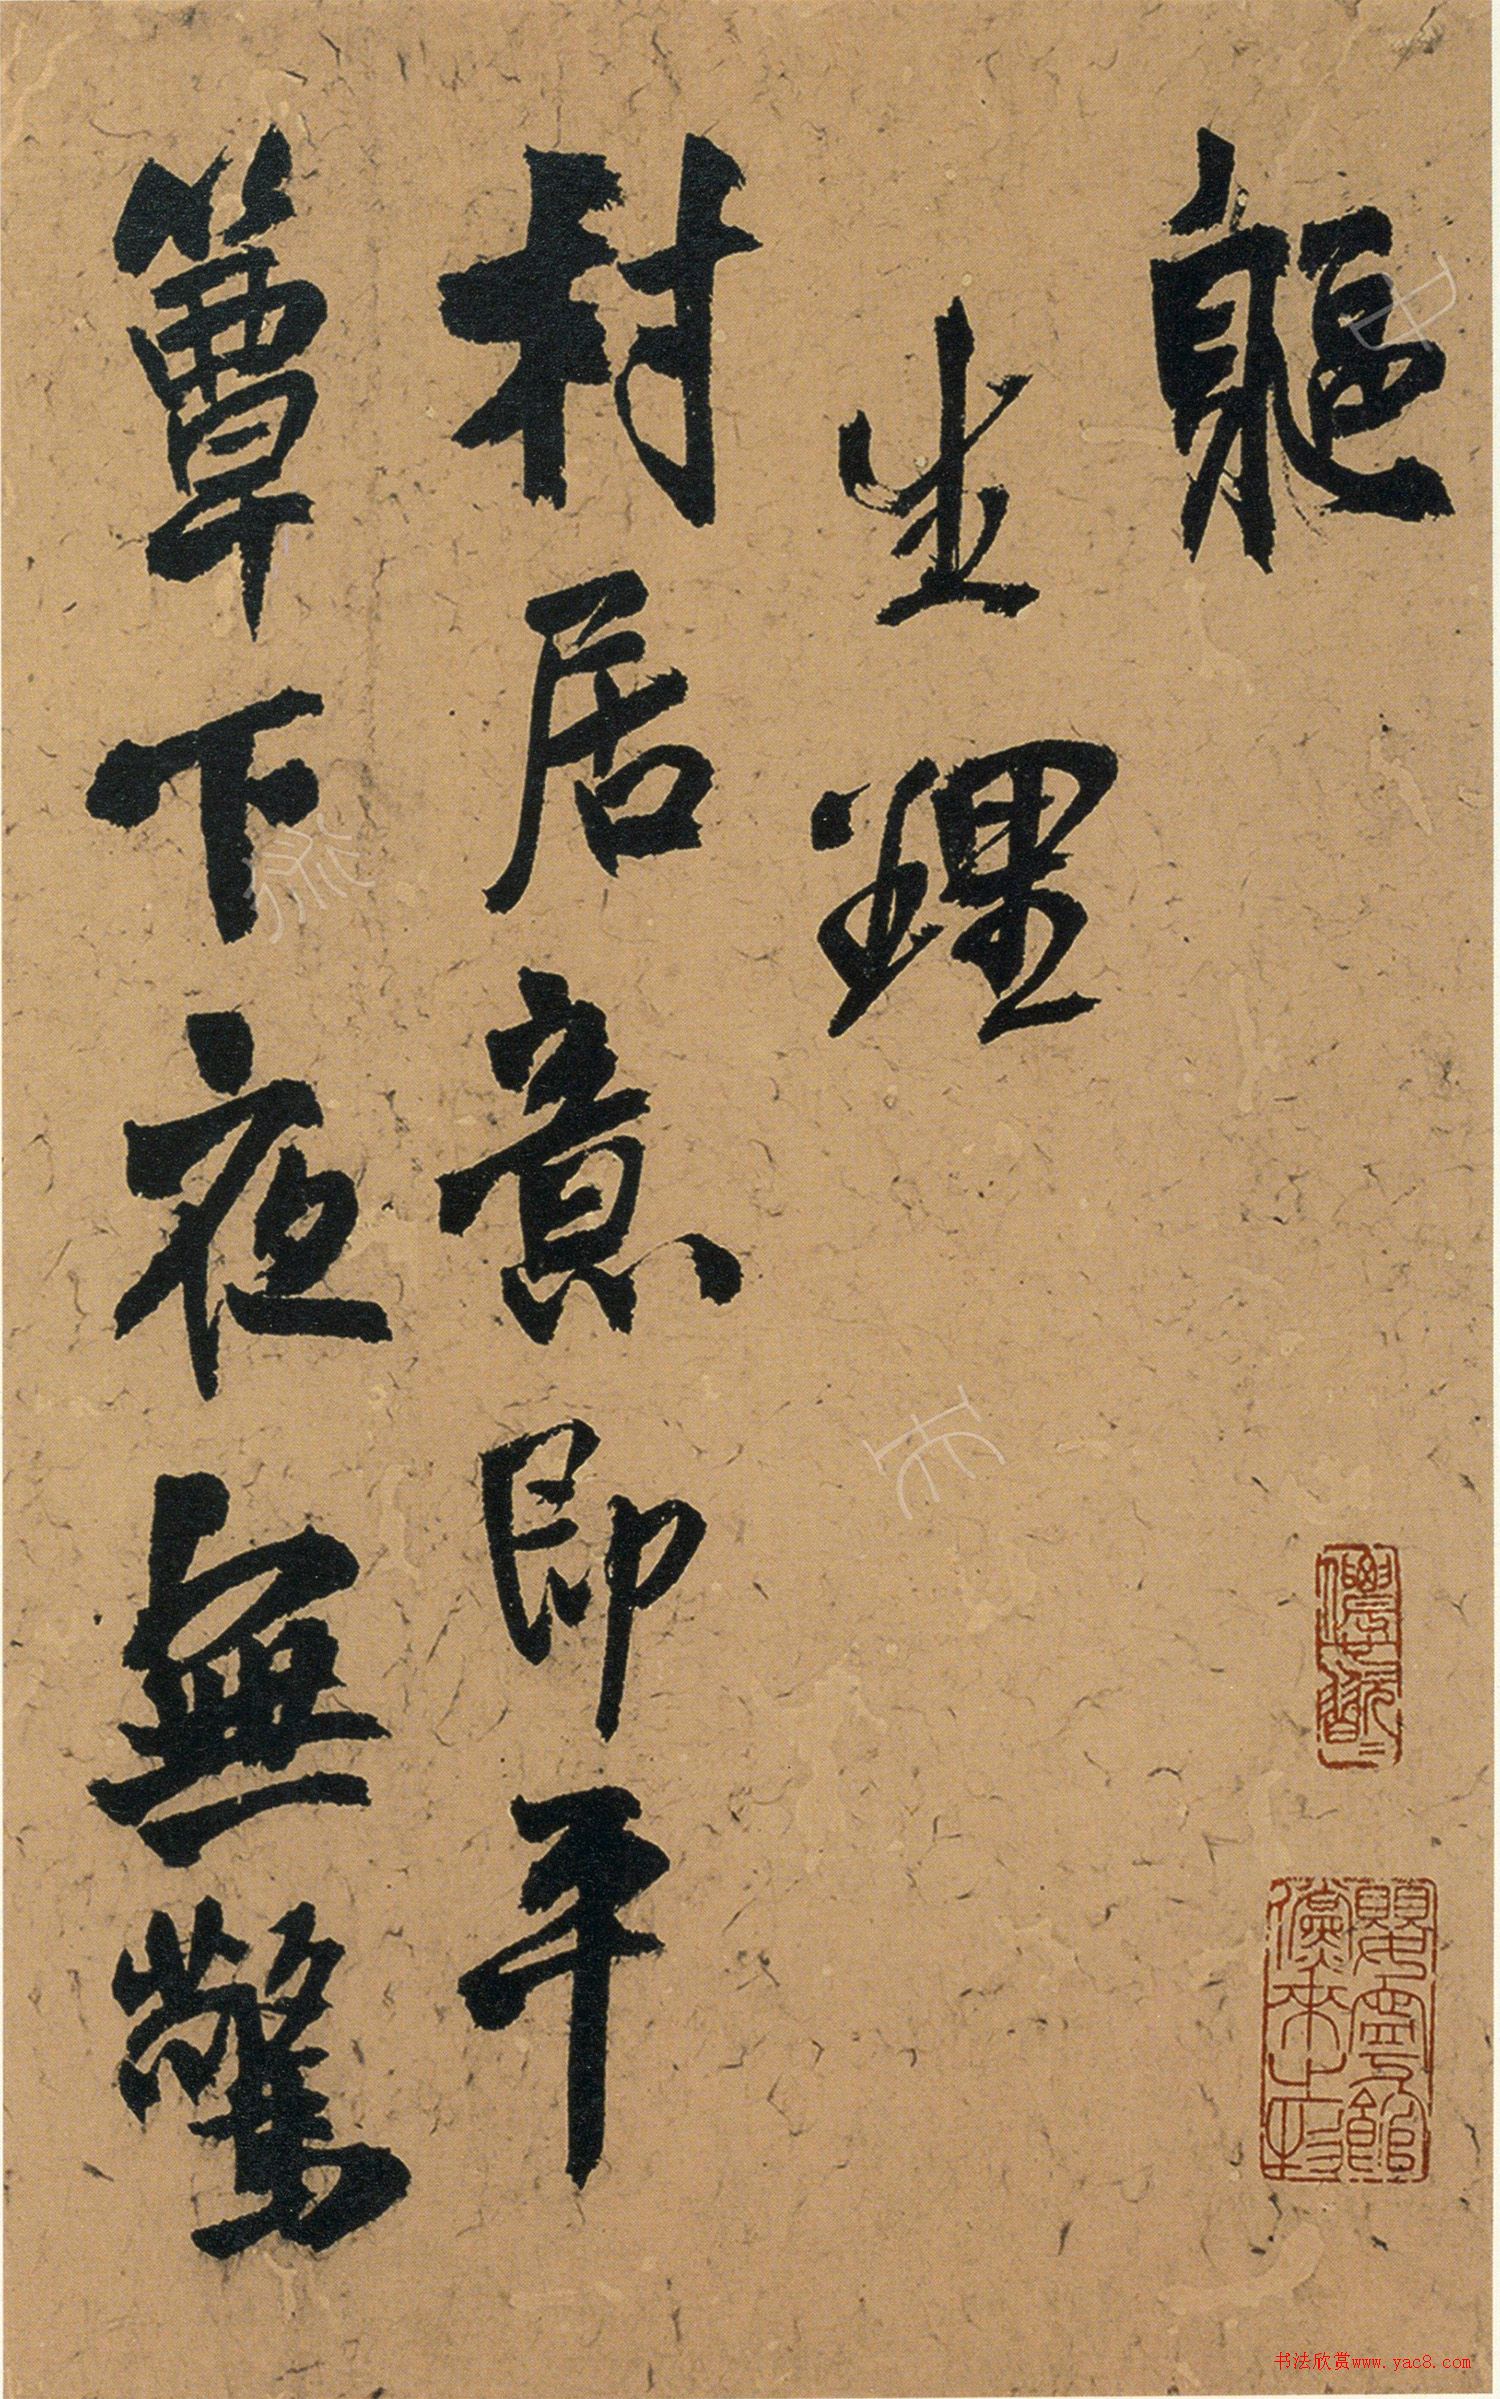 軀
生理
村居意即平
簟下夜無驚
書法欣赏www.yac8.com